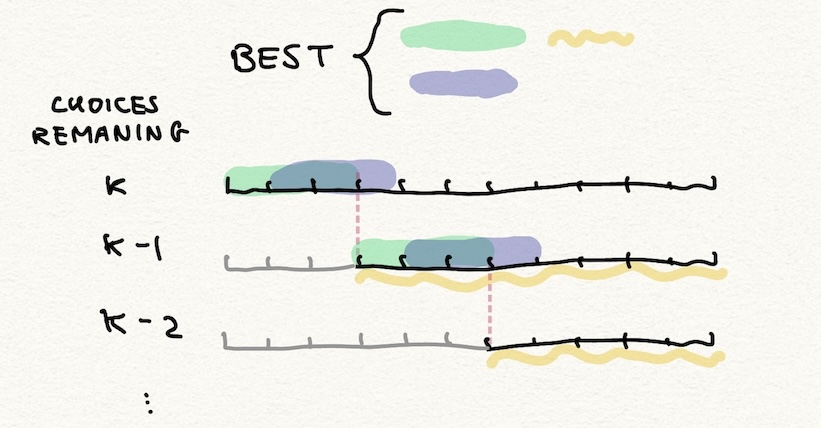 BEST
CHOICES
REMANING
K
K-1
K-2
⋮